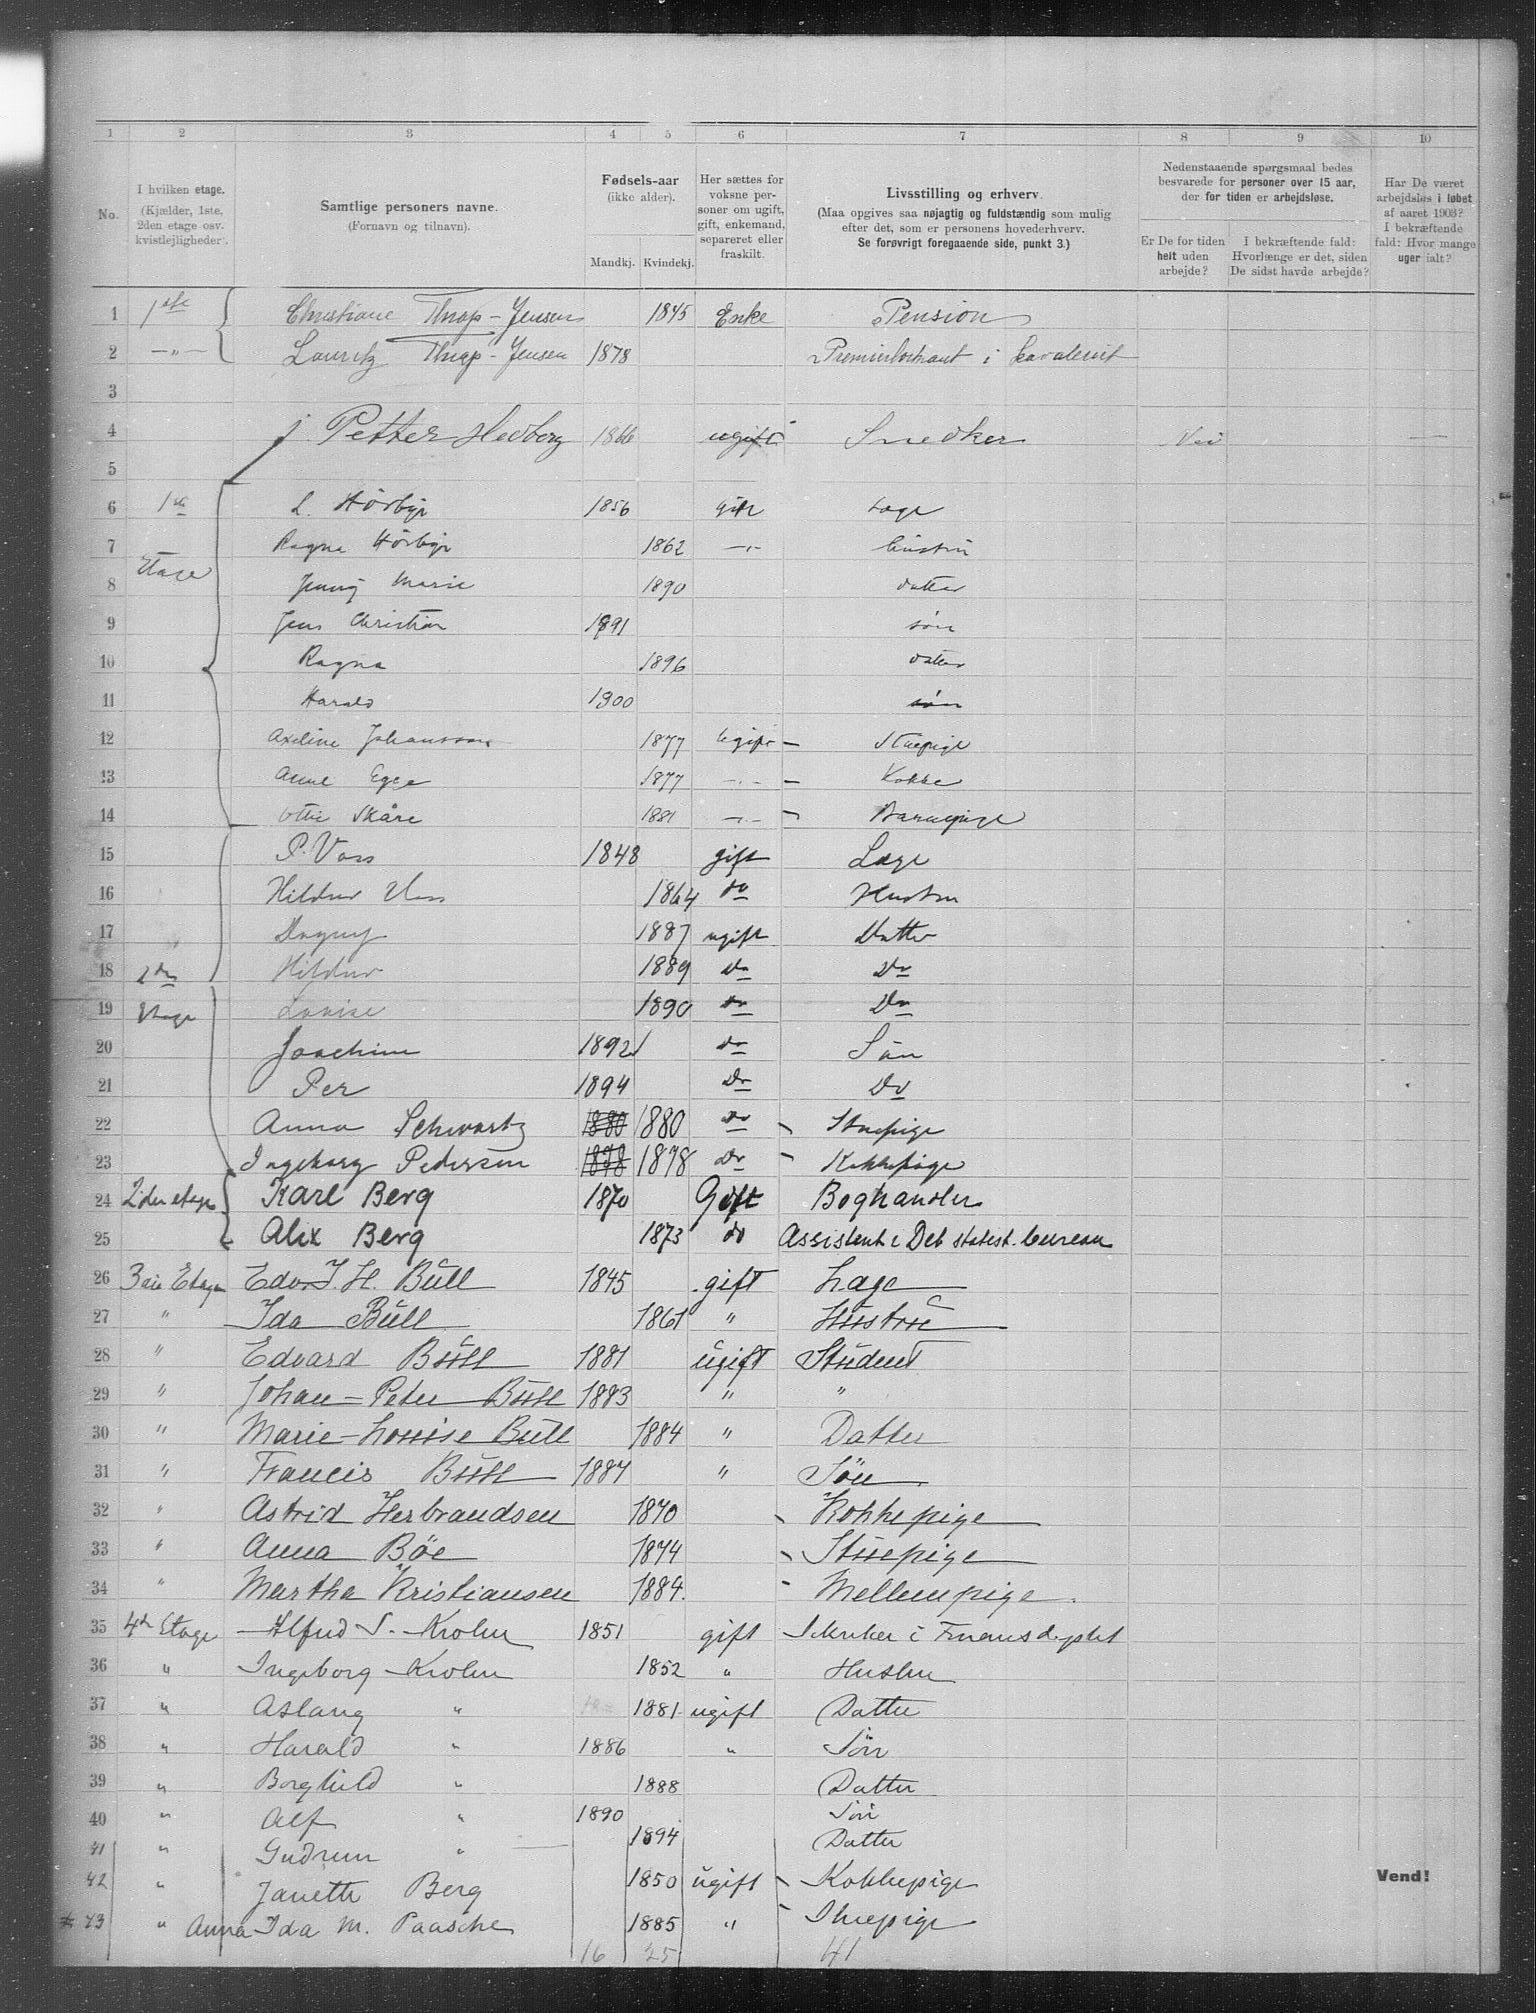 1 2 3 4 5 6 7 8 9 10
No.
I hvilken etage. (Kjælder, 1ste, 2den etage osv. kvistlejligheder).
Samtlige personers navne. (Fornavn og tilnavn).
Fødsels-aar (ikke alder). Mandkj. Kvindekj.
Her sættes for voksne personer om ugift, gift, enkemand, separeret eller fraskilt.
Livsstilling og erhverv. (Maa opgives saa nøjagtig og fuldstændig som mulig efter det, som er personens hovederhverv. Se forøvrigt foregaaende side, punkt 3.)
Nedenstaaende spørgsmaal bedes besvarede for personer over 15 aar, der for tiden er arbejdsløse.
Er De for tiden helt uden arbejde?
I bekræftende fald: Hvorlænge er det, siden De sidst havde arbejde?
Har De været arbejdsløs i løbet af aaret 1903? I bekræftende fald: Hvor mange uger ialt?
1 1ste Christiane Thrap-Jensen 1845 Enke Pension
2 —"— Lauritz Thrap-Jensen 1878 Premierløitnant i kavaleriet
3
4 Petter Hedberg 1866 ugift Snedker Nei —
5
6 1ste L. Hörbye 1856 gift Læge
7 Ragna Hörbye 1862 —"— hustru
Etage
8 Jenny Marie 1890 datter
9 Jens Christian 1891 søn
10 Ragna 1896 datter
11 Harald 1900 søn
12 Axeline Johansson 1877 Ugift — Stuepige
13 Anne Egge 1877 —"— — Kokke
14 Ottie Skåre 1881 —"— — Barnepige
15 P. Voss 1848 gift Læge
16 Hildur Voss 1864 do Hustru
17 Dagny 1887 ugift Datter
18 2den Hildur 1889 Do Do
19 Etage Louise 1890 do Do
20 Joachim 1892 do Søn
21 Per 1894 Do Do
22 Anna Schwartz 1880 1880 do Stuepige
23 Ingeborg Pedersen 1878 1878 Do Kokkepige
24 2den etage Karl Berg 1870 Gift Boghandler
25 Alix Berg 1873 do Assistent i Det statist. bureau
26 3die Etage Edv. I. H. Bull 1845 gift Læge
27 " Ida Bull 1861 " Hustru
28 " Edvard Bull 1881 ugift Student
29 " Johan-Peter Bull 1883 " "
30 " Marie-Louise Bull 1884 " Datter
31 " Francis Bull 1887 " Søn
32 " Astrid Herbrandsen 1870 Kokkepige
33 " Anna Böe 1874 Stuepige
34 " Martha Kristiansen 1884. Mellempige.
35 4de Etage Alfred S. Krohn 1851 gift Sekretær i Finansdeptet
36 " Ingeborg Krohn 1852 " Hustru
37 " Aslaug " 1881 ugift Datter
38 " Harald " 1886 " Søn
39 " Borghild " 1888 Datter
40 " Alf " 1890 Søn
41 " Gudrun " 1894 Datter
42 " Janette Berg 1850 ugift Kokkepige
43 " Anna Ida M. Paasche 1885 " Stuepige
16 25 41
Vend!